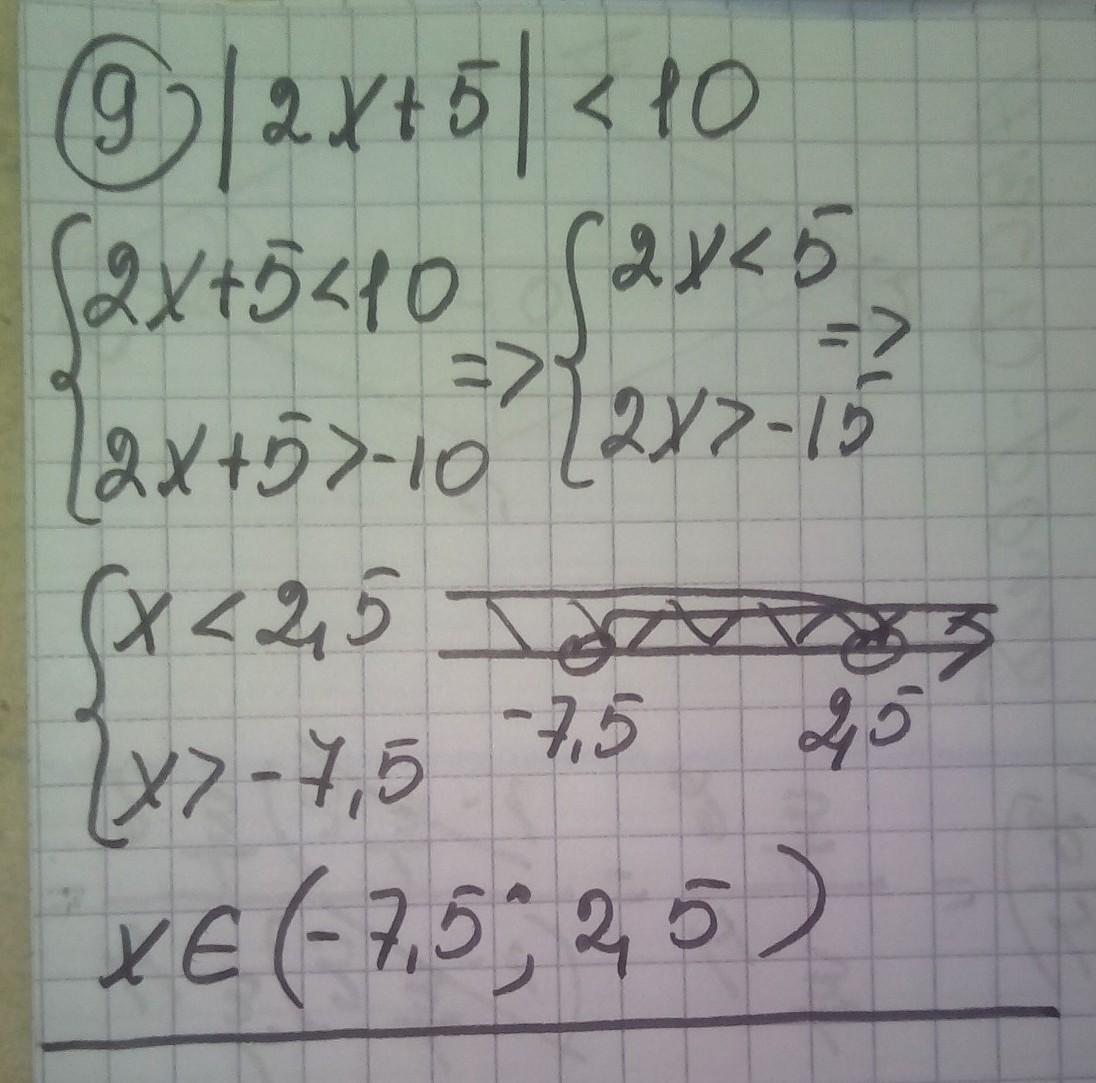 9) |2x+5| < 10
{2x+5<10 => {2x<5 =>
{2x+5>-10 {2x>-15
{x < 2,5
{x > -7,5
-7,5 2,5
x ∈ (-7,5; 2,5)